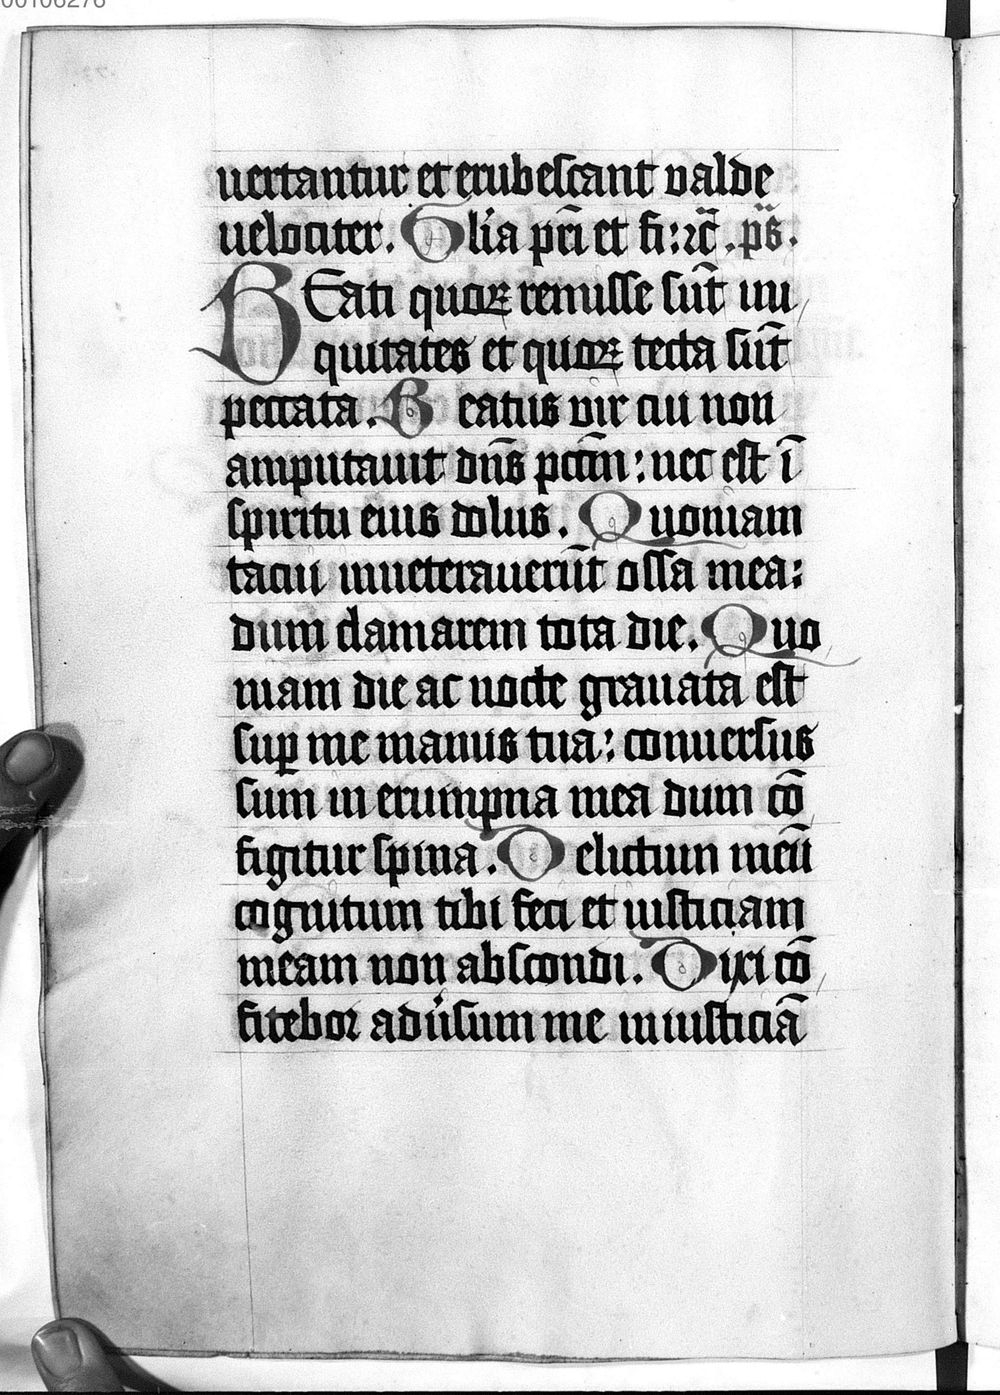 00106276
uertantur et erubescant valde
uelociter. Glia pri et fi: ꝛc̃. ps̃.
BEati quoꝝ remisse sūt ini
quitates et quoꝝ tecta sūt
peccata. Beatus vir cui non
amputauit dn̄s pctm̄: nec est ī
spiritu eius dolus. Quoniam
tacui inueterauerūt ossa mea:
dum clamarem tota die. Quo
niam die ac nocte grauata est
suꝑ me manus tua: conuersus
sum in erumpna mea dum cō
figitur spina. Delictum meū
cognitum tibi feci et iusticiam
meam non abscondi. Dixi cō
fitebor aduˀsum me iniusticiā